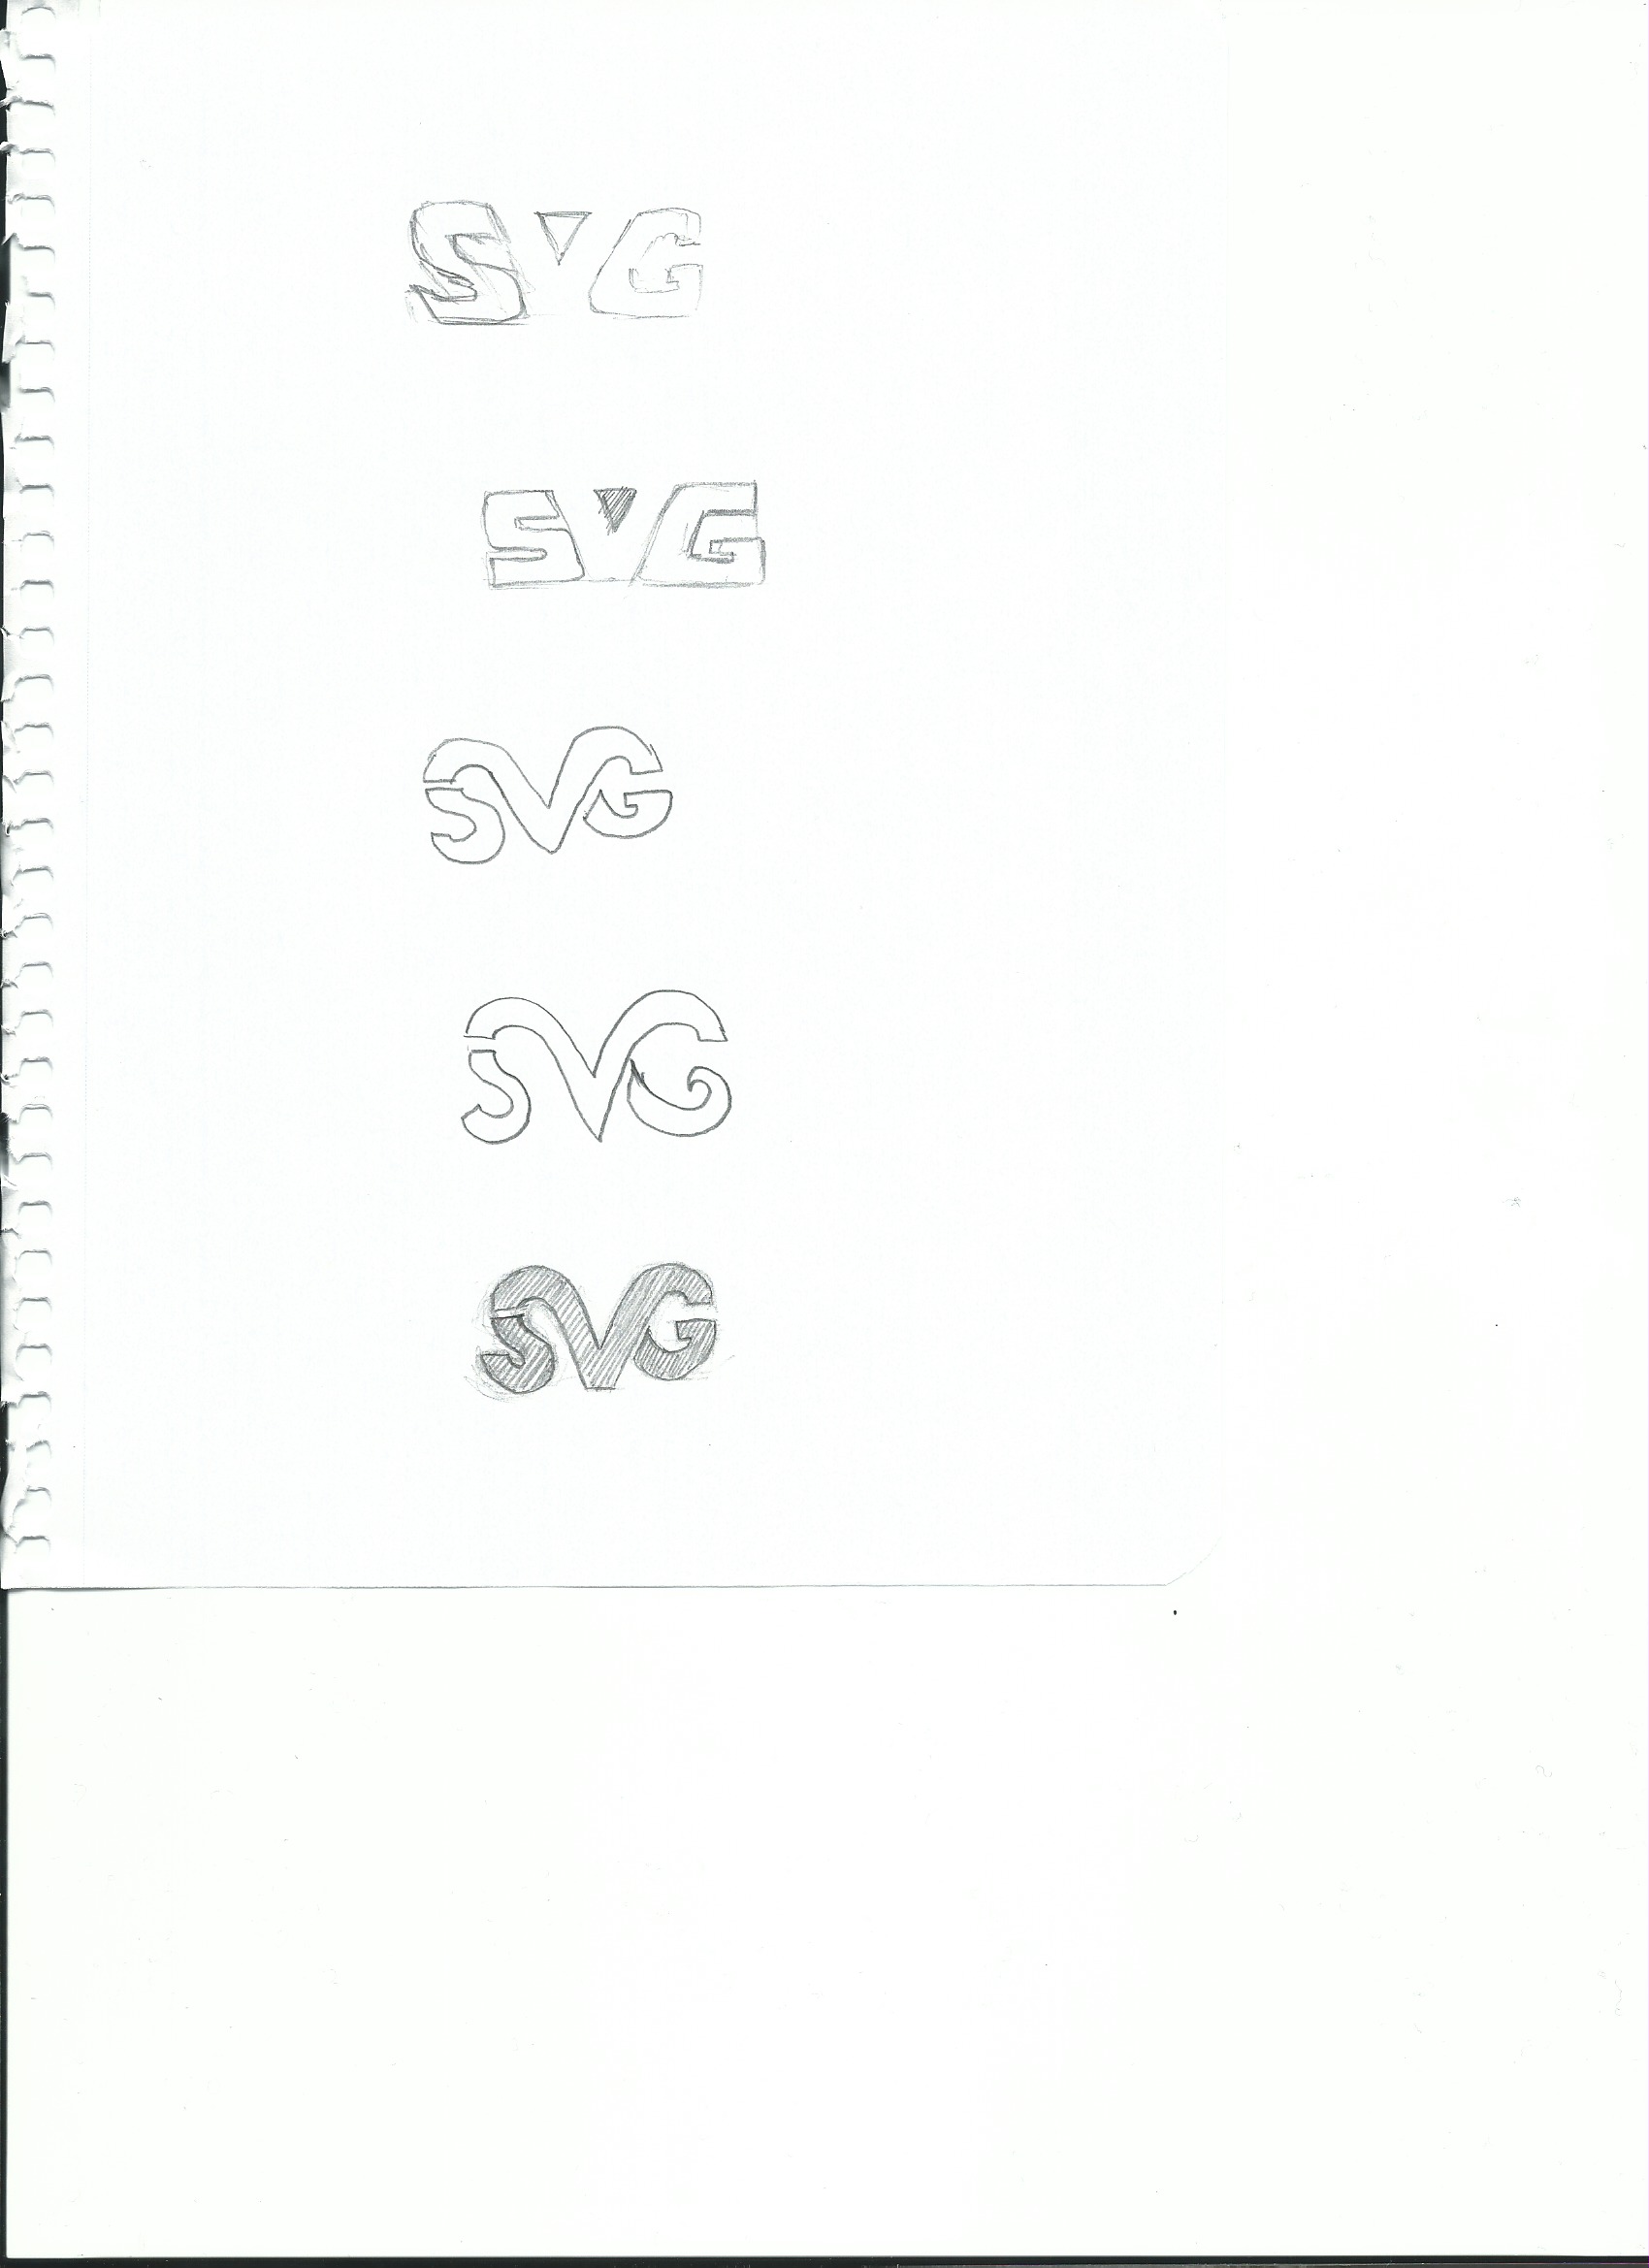 SVG
SVG
SVG
SVG
SVG